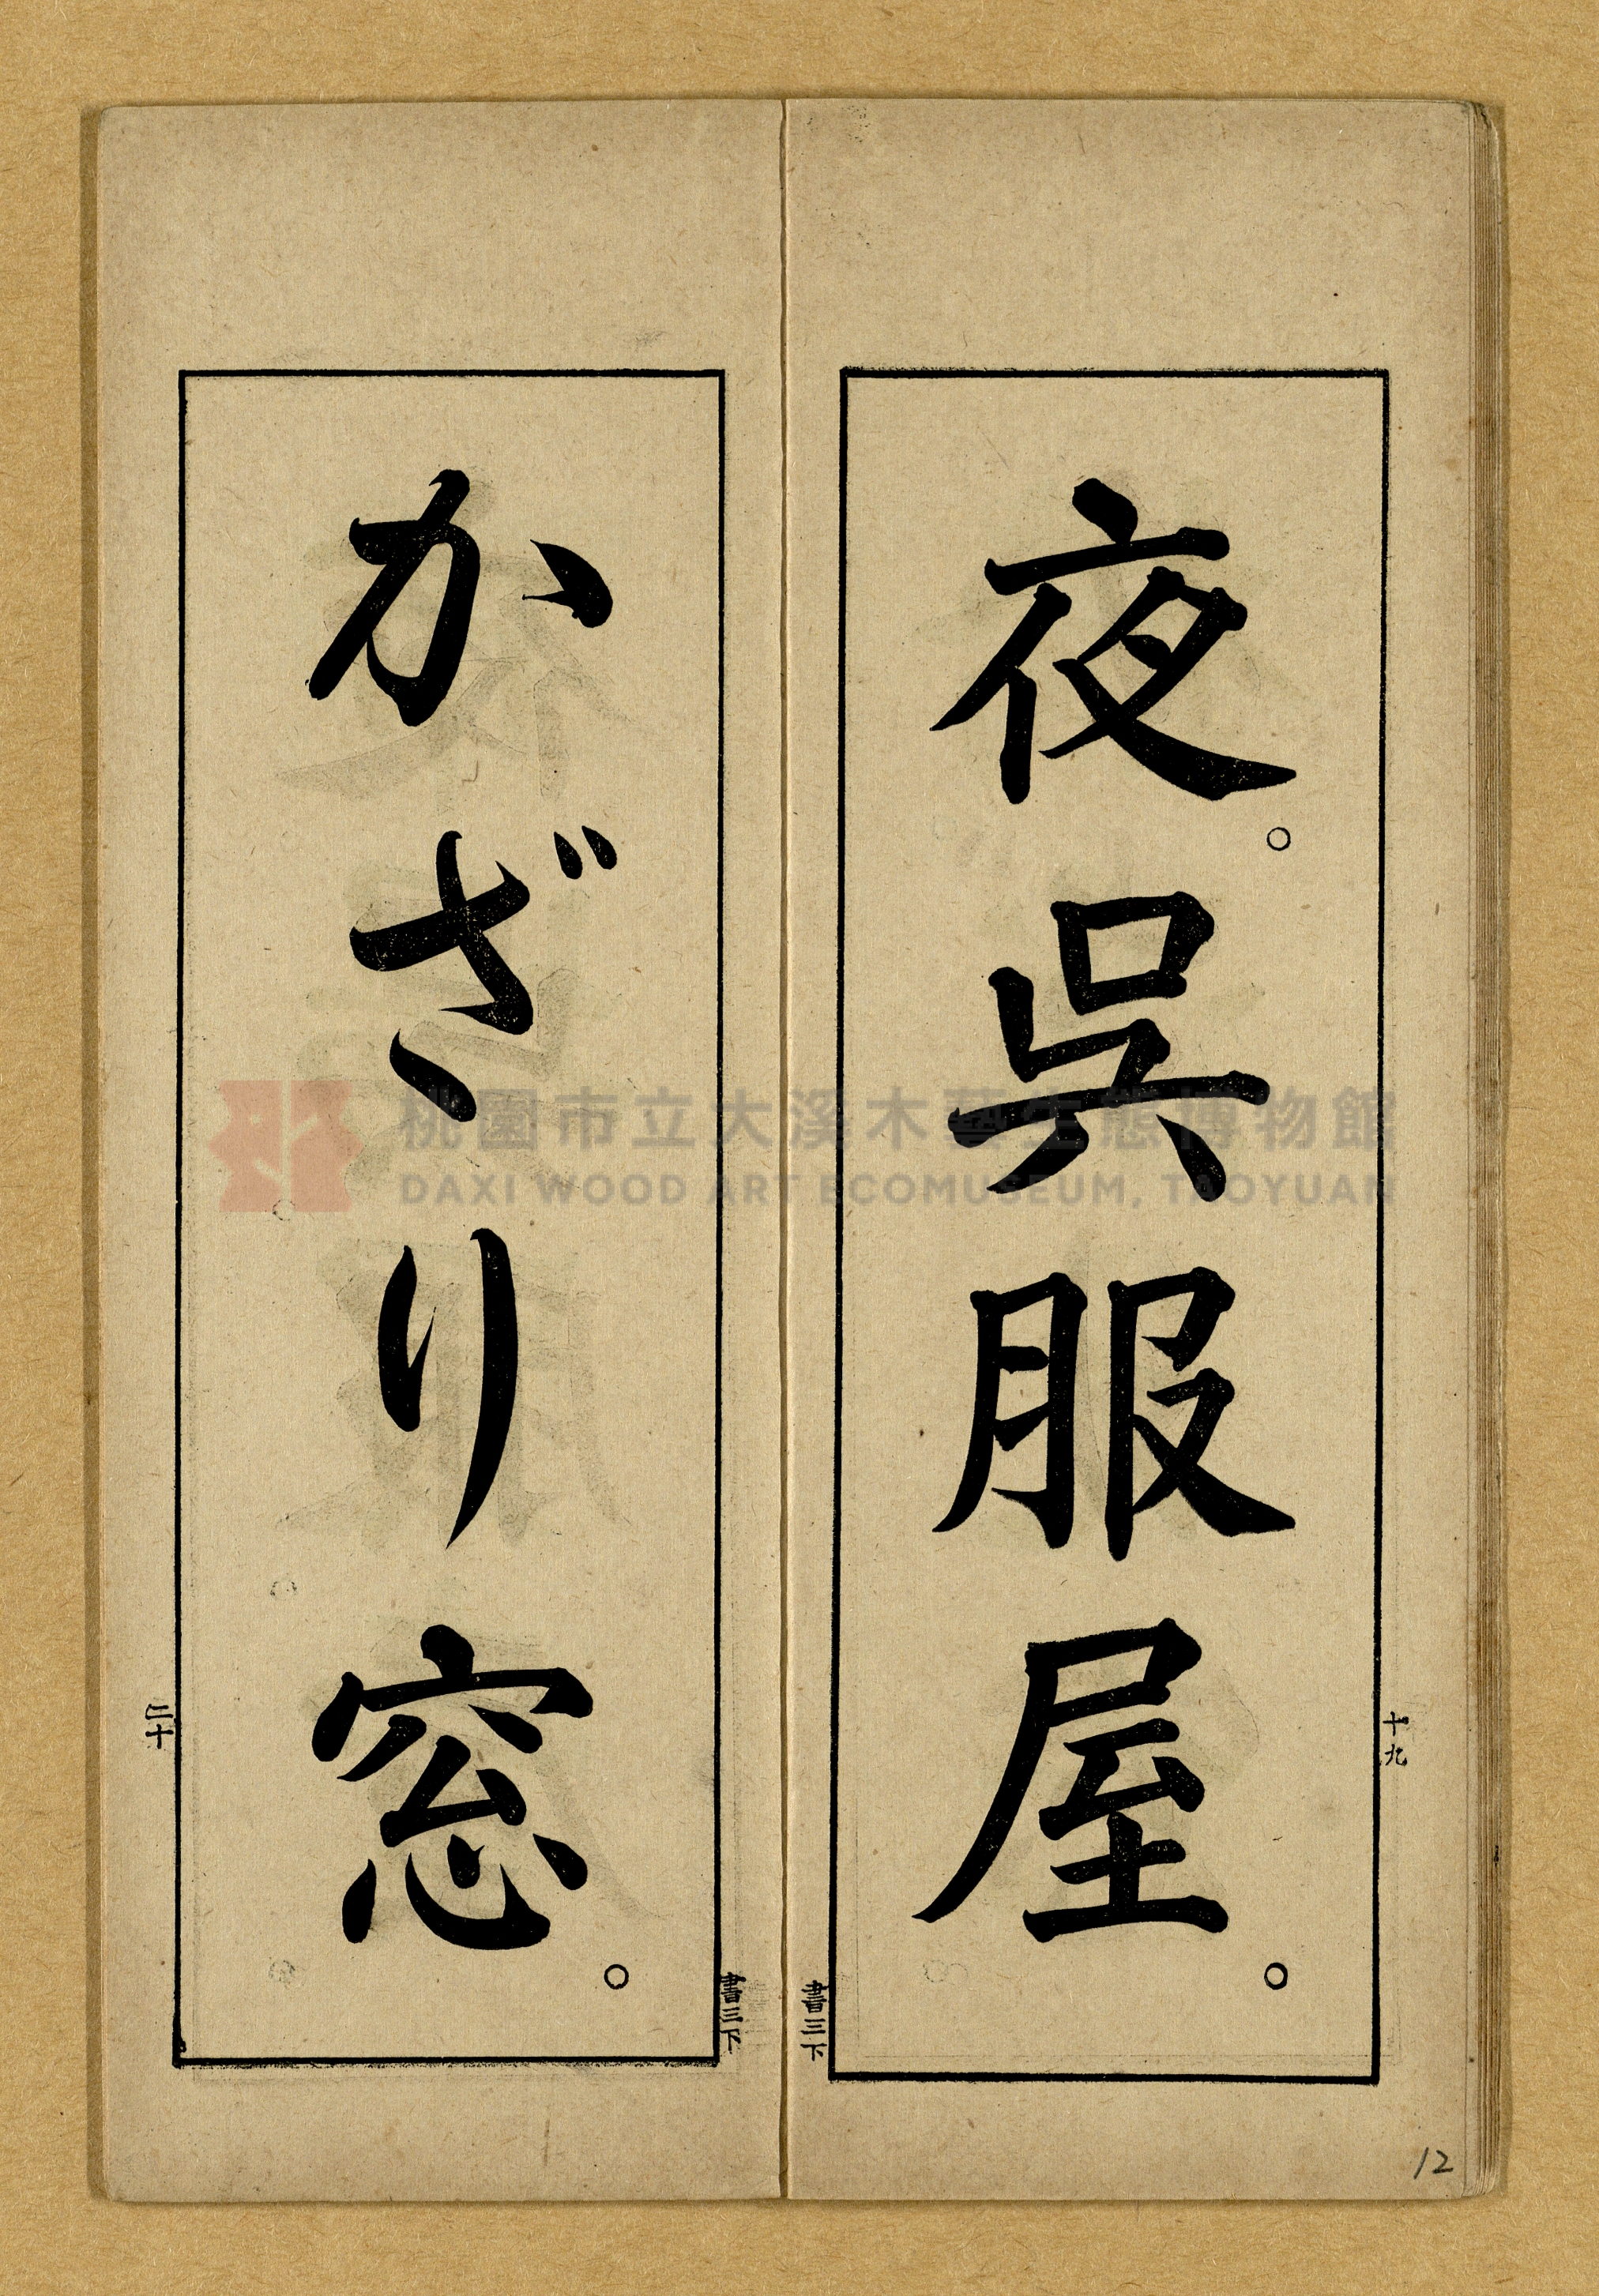 夜。呉服屋。
十九
書三下
かざり窓。
二十
書三下
12
桃園市立大溪木藝生態博物館
DAXI WOOD ART ECOMUSEUM, TAOYUAN